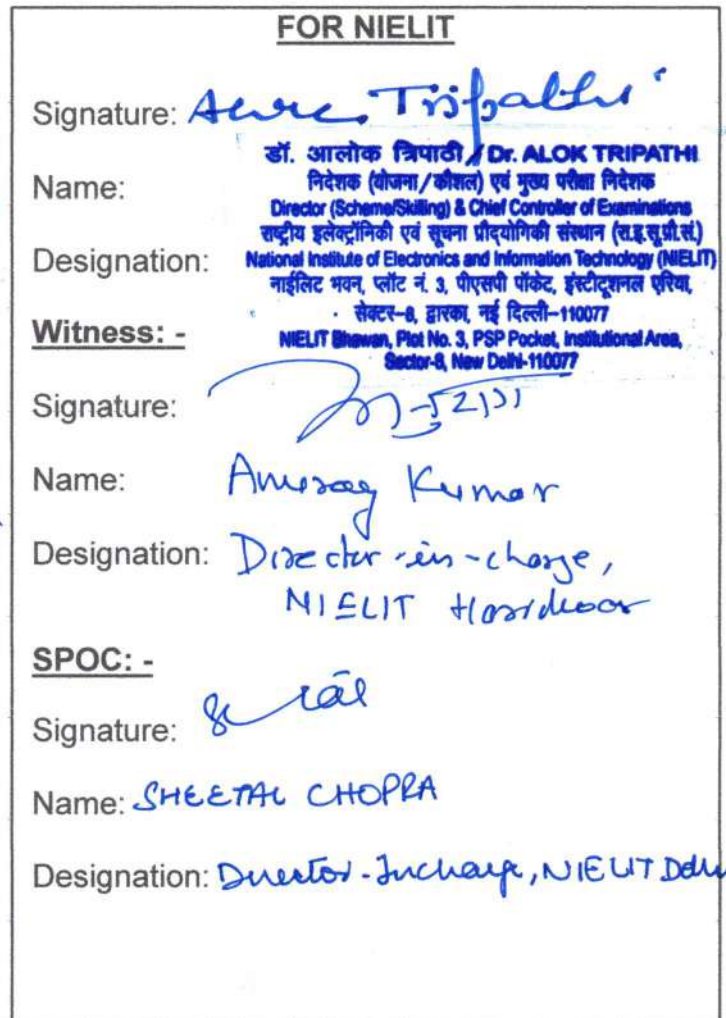 FOR NIELIT
Signature: Tripathi
डॉ. आलोक त्रिपाठी / Dr. ALOK TRIPATHI
Name: निदेशक (योजना/कौशल) एवं मुख्य परीक्षा निदेशक
Director (Scheme/Skilling) & Chief Controller of Examinations
राष्ट्रीय इलेक्ट्रॉनिकी एवं सूचना प्रौद्योगिकी संस्थान (रा.इ.सू.प्रौ.सं.)
Designation: National Institute of Electronics and Information Technology (NIELIT)
नाईलिट भवन, प्लॉट नं. 3, पीएसपी पॉकेट, इंस्टीटूशनल एरिया,
सेक्टर-8, द्वारका, नई दिल्ली-110077
Witness: -
NIELIT Bhawan, Plot No. 3, PSP Pocket, Institutional Area,
Sector-8, New Delhi-110077
Signature:
Name: Anurag Kumar
Designation: Director-in-charge,
NIELIT Haridwar
SPOC: -
Signature:
Name: SHEETAL CHOPRA
Designation: Director-Incharge, NIELIT Delhi